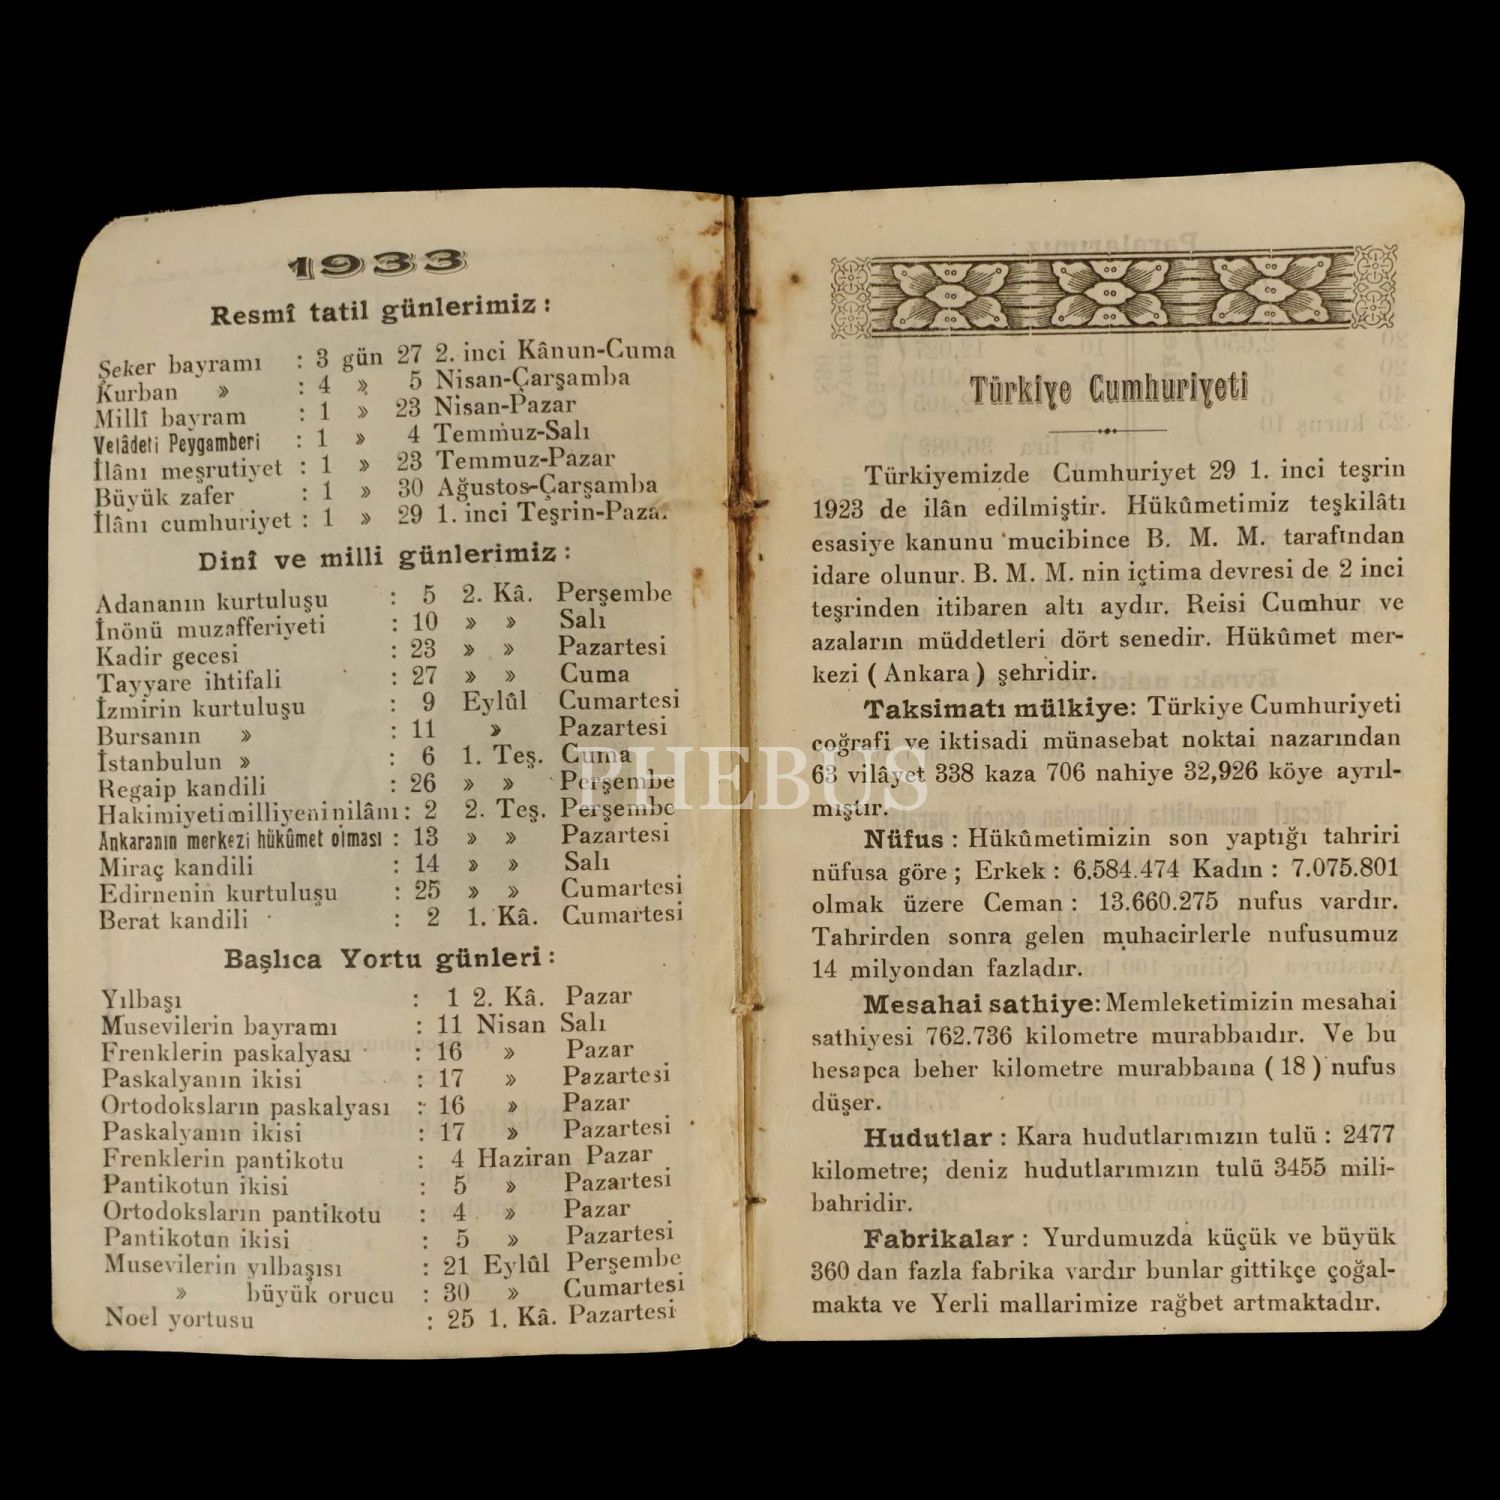 1933
Resmî tatil günlerimiz :
Şeker bayramı : 3 gün 27 2. inci Kânun-Cuma
Kurban » : 4 » 5 Nisan-Çarşamba
Millî bayram : 1 » 23 Nisan-Pazar
Velâdeti Peygamberi : 1 » 4 Temmuz-Salı
İlânı meşrutiyet : 1 » 23 Temmuz-Pazar
Büyük zafer : 1 » 30 Ağustos-Çarşamba
İlânı cumhuriyet : 1 » 29 1. inci Teşrin-Pazar
Dinî ve milli günlerimiz :
Adananın kurtuluşu : 5 2. Kâ. Perşembe
İnönü muzafferiyeti : 10 » » Salı
Kadir gecesi : 23 » » Pazartesi
Tayyare ihtifali : 27 » » Cuma
İzmirin kurtuluşu : 9 Eylûl Cumartesi
Bursanın » : 11 » Pazartesi
İstanbulun » : 6 1. Teş. Cuma
Regaip kandili : 26 » » Perşembe
Hakimiyetimilliyeninilânı : 2 2. Teş. Perşembe
Ankaranın merkezi hükûmet olması : 13 » » Pazartesi
Miraç kandili : 14 » » Salı
Edirnenin kurtuluşu : 25 » » Cumartesi
Berat kandili : 2 1. Kâ. Cumartesi
Başlıca Yortu günleri :
Yılbaşı : 1 2. Kâ. Pazar
Musevilerin bayramı : 11 Nisan Salı
Frenklerin paskalyası : 16 » Pazar
Paskalyanın ikisi : 17 » Pazartesi
Ortodoksların paskalyası : 16 » Pazar
Paskalyanın ikisi : 17 » Pazartesi
Frenklerin pantikotu : 4 Haziran Pazar
Pantikotun ikisi : 5 » Pazartesi
Ortodoksların pantikotu : 4 » Pazar
Pantikotun ikisi : 5 » Pazartesi
Musevilerin yılbaşısı : 21 Eylûl Perşembe
» büyük orucu : 30 » Cumartesi
Noel yortusu : 25 1. Kâ. Pazartesi
Türkiye Cumhuriyeti
Türkiyemizde Cumhuriyet 29 1. inci teşrin
1923 de ilân edilmiştir. Hükûmetimiz teşkilâtı
esasiye kanunu mucibince B. M. M. tarafından
idare olunur. B. M. M. nin içtima devresi de 2 inci
teşrinden itibaren altı aydır. Reisi Cumhur ve
azaların müddetleri dört senedir. Hükûmet mer-
kezi ( Ankara ) şehridir.
Taksimatı mülkiye: Türkiye Cumhuriyeti
coğrafi ve iktisadi münasebat noktai nazarından
63 vilâyet 338 kaza 706 nahiye 32,926 köye ayrıl-
mıştır.
Nüfus : Hükûmetimizin son yaptığı tahriri
nüfusa göre ; Erkek : 6.584.474 Kadın : 7.075.801
olmak üzere Ceman : 13.660.275 nufus vardır.
Tahrirden sonra gelen muhacirlerle nufusumuz
14 milyondan fazladır.
Mesahai sathiye: Memleketimizin mesahai
sathiyesi 762.736 kilometre murabbaıdır. Ve bu
hesapca beher kilometre murabbaına ( 18 ) nufus
düşer.
Hudutlar : Kara hudutlarımızın tulü : 2477
kilometre; deniz hudutlarımızın tulü 3455 mili-
bahridir.
Fabrikalar : Yurdumuzda küçük ve büyük
360 dan fazla fabrika vardır bunlar gittikçe çoğal-
makta ve Yerli mallarimize rağbet artmaktadır.
PHEBUS